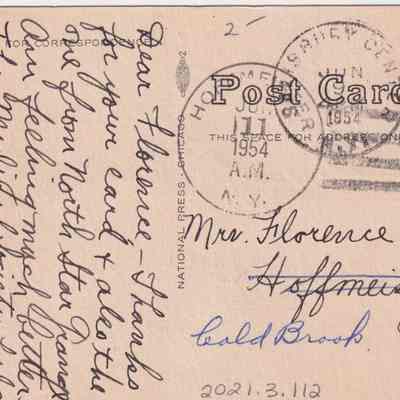 2-
FOR CORRESPONDENCE
Post Card
THIS SPACE FOR ADDRESS ON
NATIONAL PRESS - CHICAGO
2
JUN
11
1954
A.M.
N.Y.
JUN
1954
Dear Florence - Thanks
for your card, & also the
one from North Star Grange
Am feeling much better
Mrs. Florence
Hoffmeis
Cold Brook.
2021.3.112